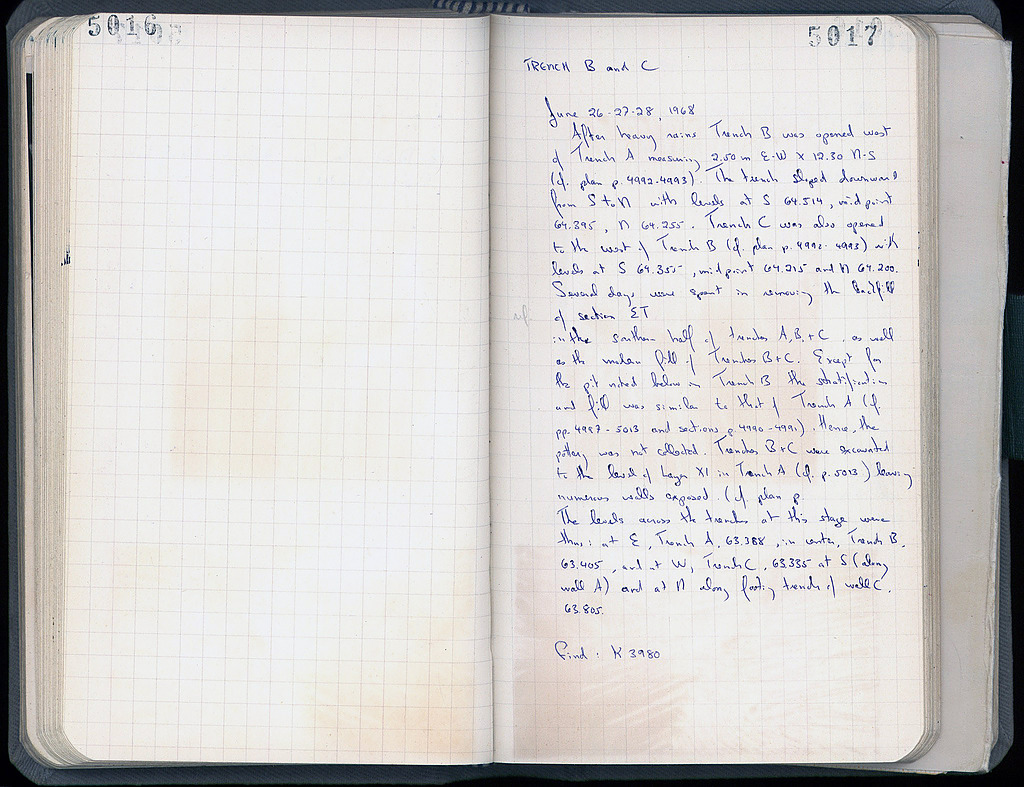 5016
5017
TRENCH B and C
June 26-27-28, 1968
After heavy rains Trench B was opened west
of Trench A measuring 2.50 m E-W x 12.30 N-S
(cf. plan p. 4992-4993). The trench sloped downward
from S to N with levels at S 64.514, midpoint
64.395, N 64.255. Trench C was also opened
to the west of Trench B (cf. plan p. 4992-4993) with
levels at S 64.355, midpoint 64.215 and N 64.200.
Several days were spent in removing the backfill
of section ET
in the southern half of trenches A, B, + C, as well
as the modern fill of Trenches B+C. Except for
the pit noted below in Trench B the stratification
and fill was similar to that of Trench A (cf.
pp. 4987-5013 and sections p. 4990-4991). Hence, the
pottery was not collected. Trenches B+C were excavated
to the level of Layer XI in Trench A (cf. p. 5013) leaving
numerous walls exposed (cf plan p.
The levels across the trenches at this stage were
thus: at E, Trench A, 63.388, in center, Trench B,
63.405, and at W, Trench C, 63.335 at S (along
wall A) and at N along footing trench of wall C,
63.805.
Find: K 3980